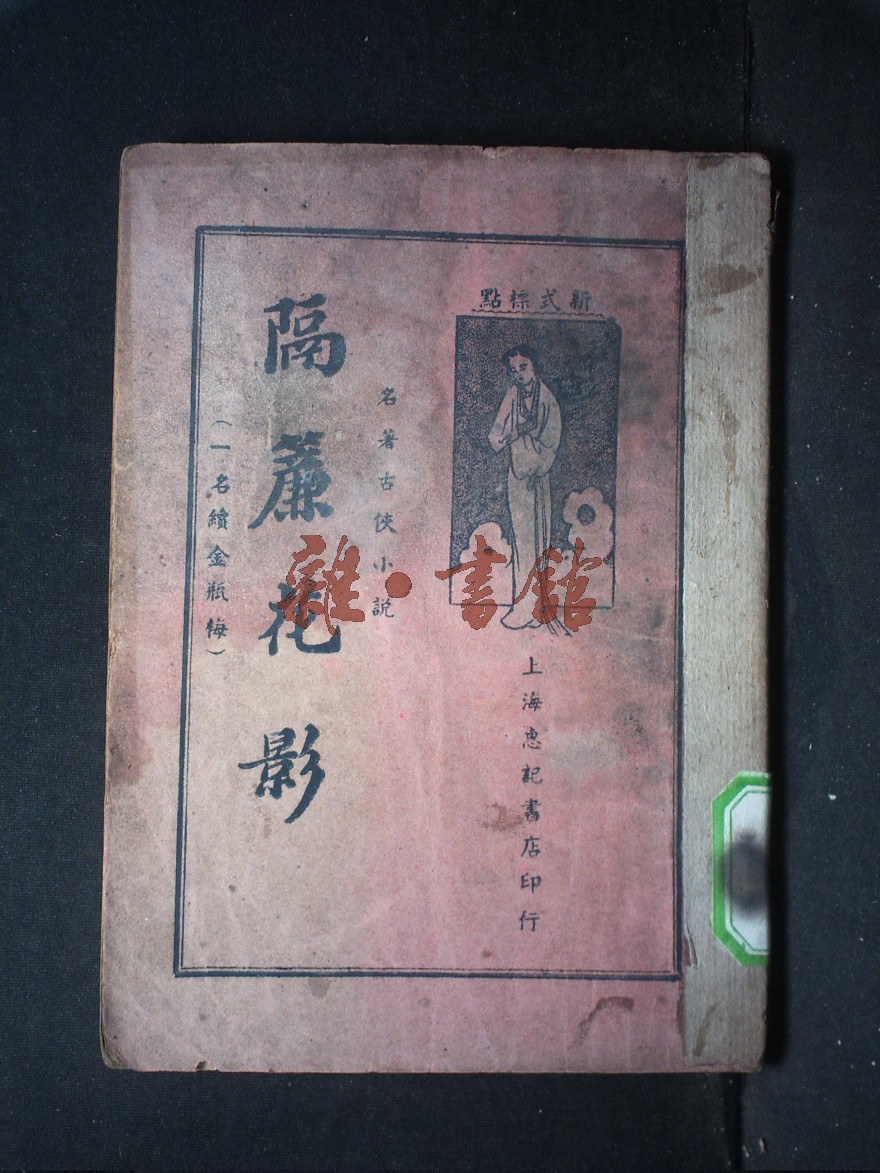 新式標點
上海惠記書店印行
名著古俠小説
隔簾花影
（一名續金瓶梅）
雜·書館